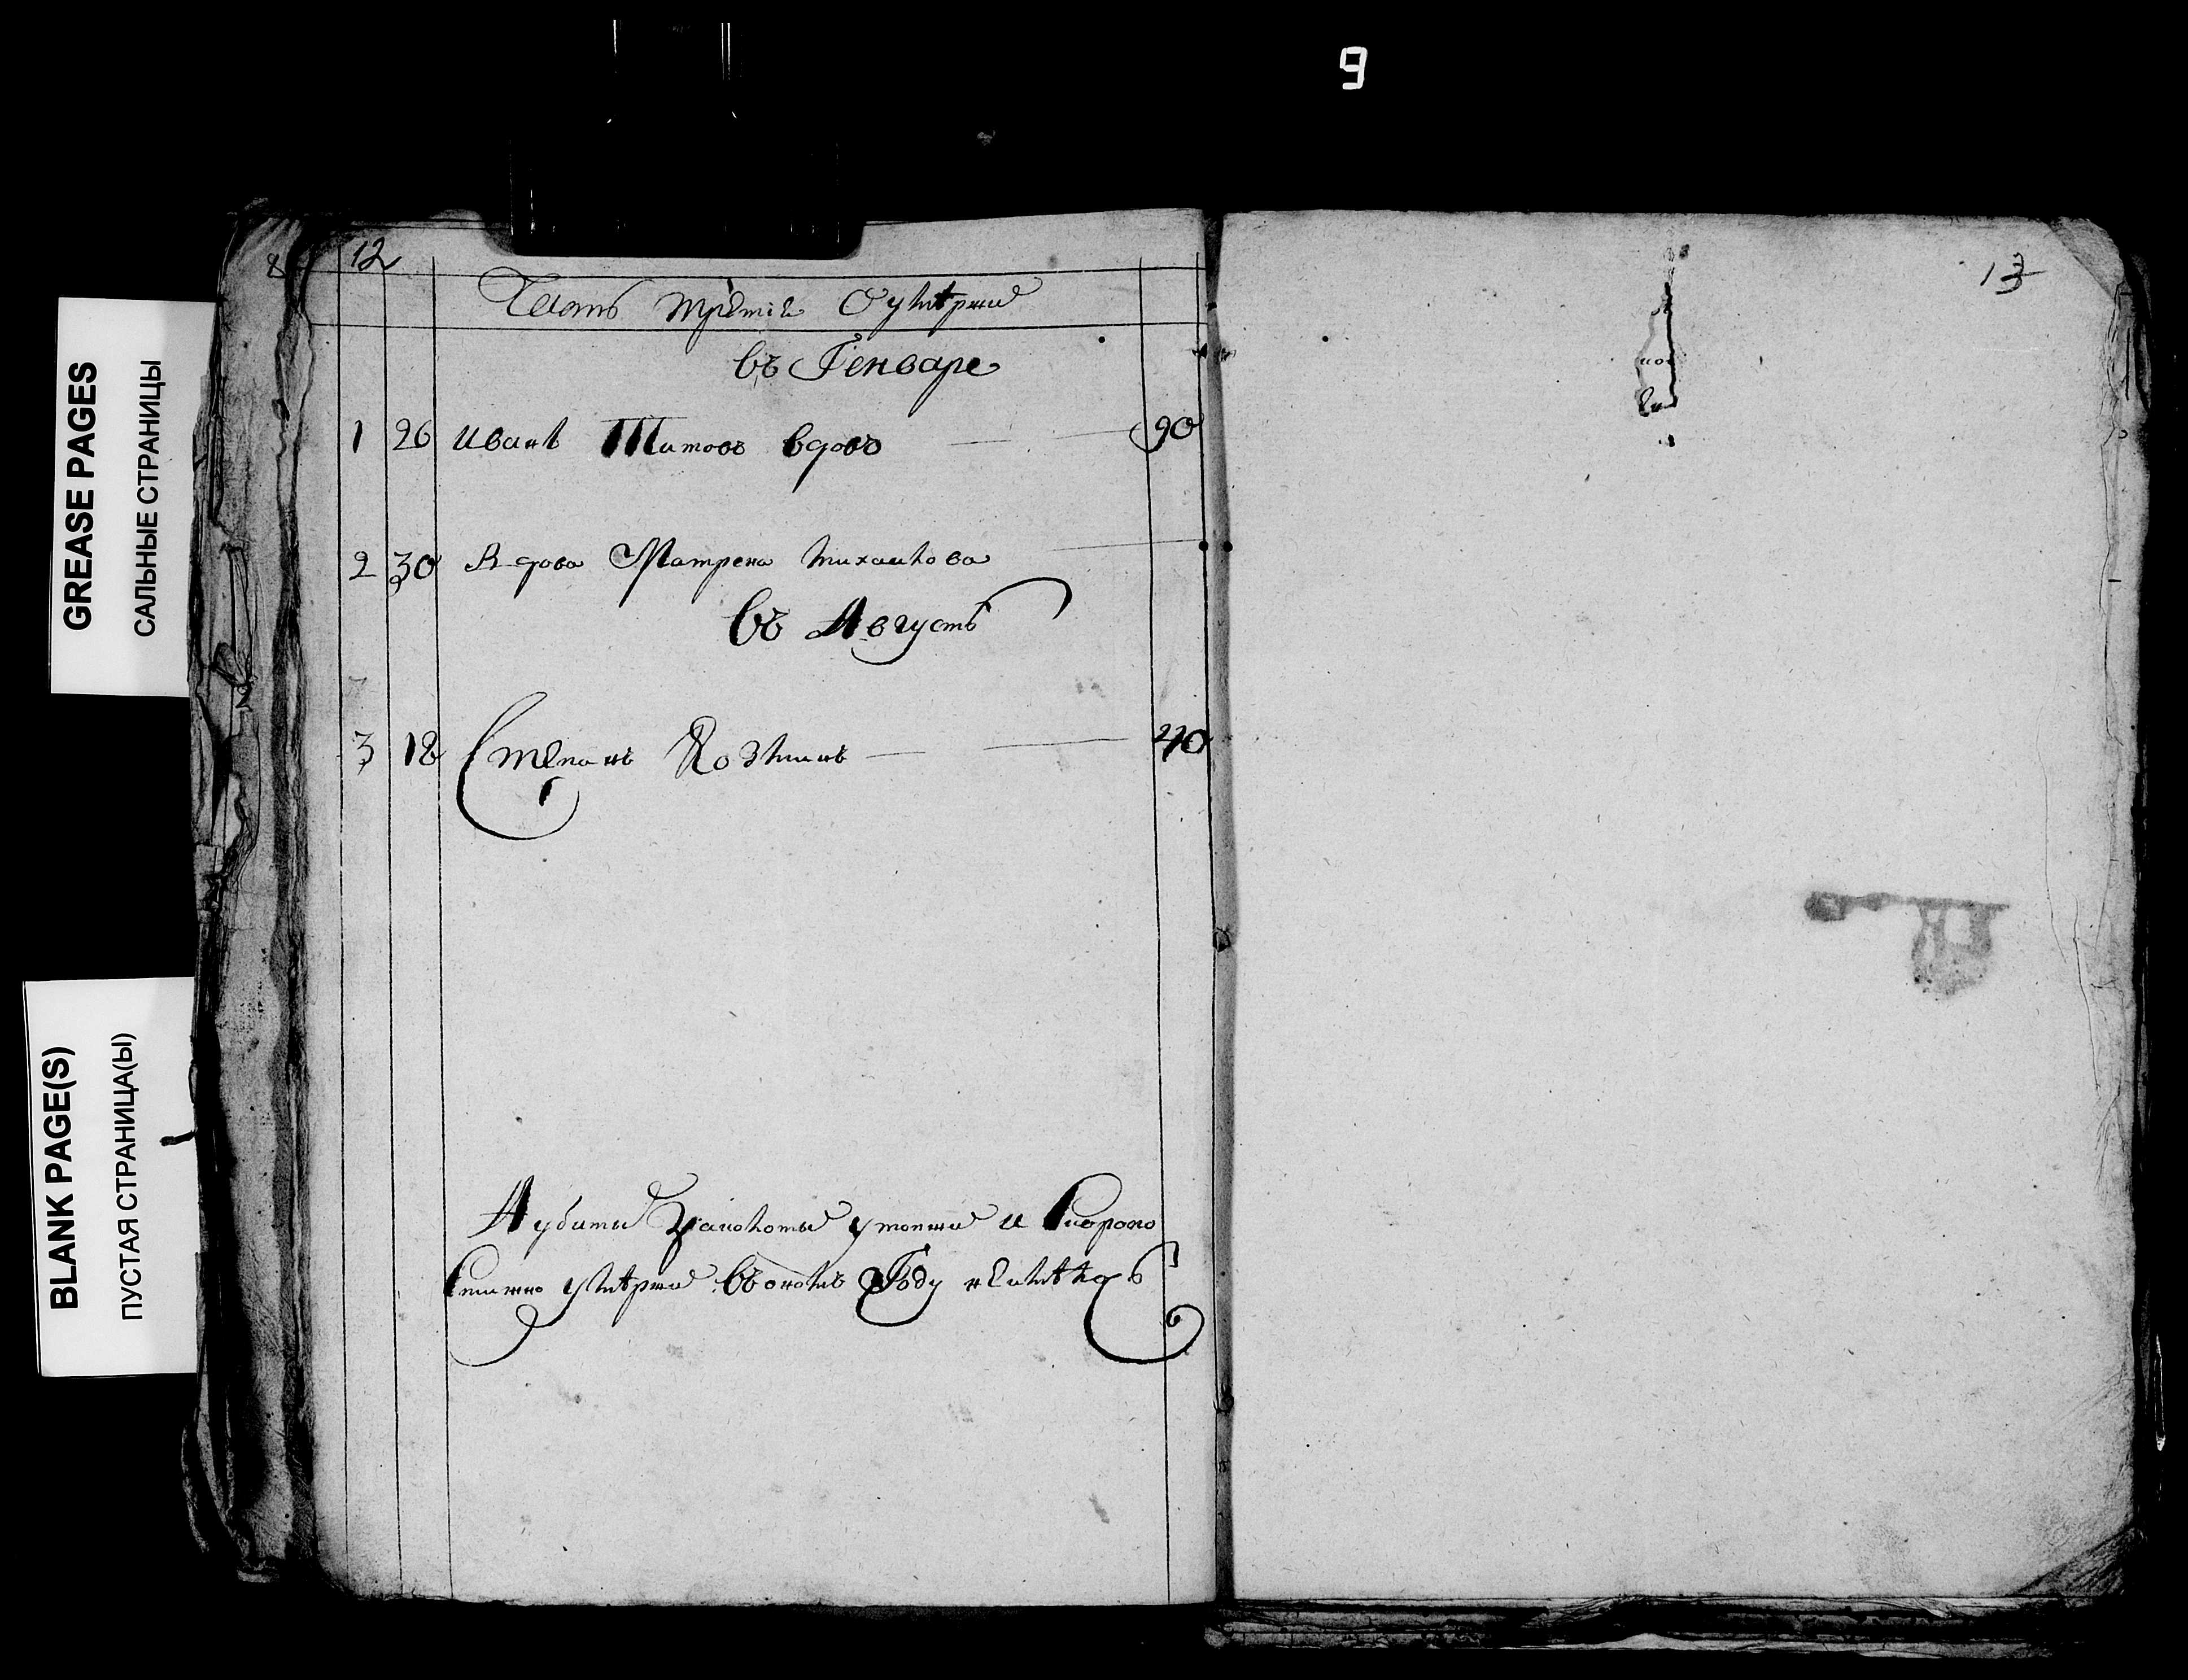 9
GREASE PAGES
САЛЬНЫЕ СТРАНИЦЫ
BLANK PAGE(S)
ПУСТАЯ СТРАНИЦА(Ы)
8 12
Часть третiя О умѣршихъ
въ Генваре
1 26 Иванъ Титовъ вдовъ 90
2 30 Вдова Матрена Михаилова
въ Августѣ
3 18 Стѣпанъ Козминъ 40
А убитыхъ утопшихъ и скоропо
стижно умѣршихъ въ ономъ Году
13